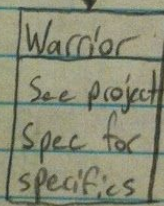 Warrior
See project
Spec for
specifics